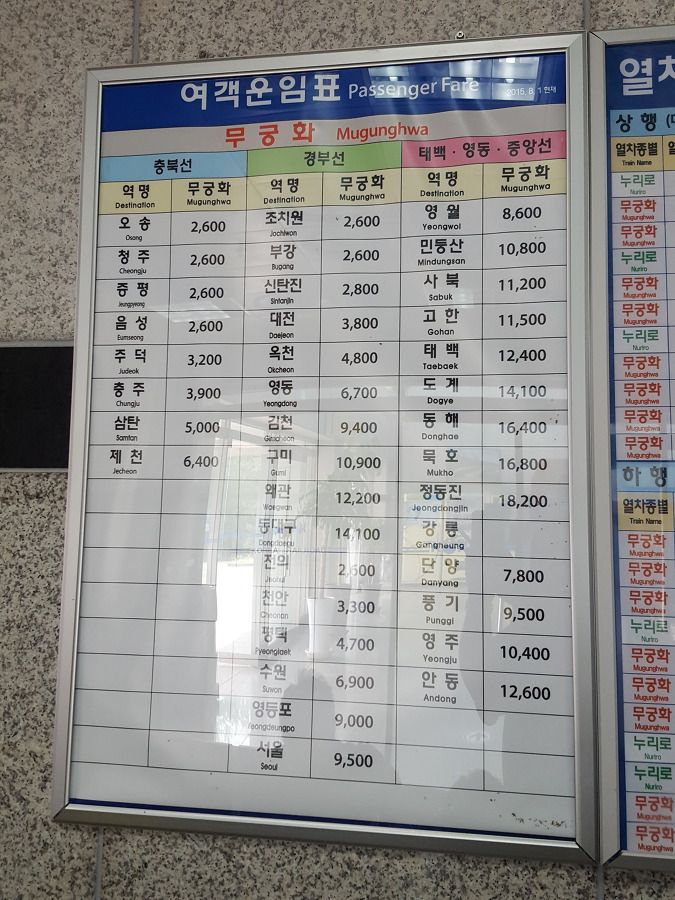 여객운임표 Passenger Fare
2015. 8. 1 현재
무궁화 Mugunghwa
충북선 경부선 태백·영동·중앙선
역명 무궁화 역명 무궁화 역명 무궁화
Destination Mugunghwa Destination Mugunghwa Destination Mugunghwa
오송 2,600 조치원 2,600 영월 8,600
Osong Jochiwon Yeongwol
청주 2,600 부강 2,600 민둥산 10,800
Cheongju Bugang Mindungsan
증평 2,600 신탄진 2,800 사북 11,200
Jeungpyeong Sintanjin Sabuk
음성 2,600 대전 3,800 고한 11,500
Eumseong Daejeon Gohan
주덕 3,200 옥천 4,800 태백 12,400
Judeok Okcheon Taebaek
충주 3,900 영동 6,700 도계 14,100
Chungju Yeongdong Dogye
삼탄 5,000 김천 9,400 동해 16,400
Samtan Gimcheon Donghae
제천 6,400 구미 10,900 묵호 16,800
Jecheon Gumi Mukho
왜관 12,200 정동진 18,200
Waegwan Jeongdongjin
동대구 14,100 강릉
Dongdaegu Gangneung
전의 2,600 단양 7,800
Jeonui Danyang
천안 3,300 풍기 9,500
Cheonan Punggi
평택 4,700 영주 10,400
Pyeongtaek Yeongju
수원 6,900 안동 12,600
Suwon Andong
영등포 9,000
Yeongdeungpo
서울 9,500
Seoul
열차
상행
열차종별
Train Name
누리로
Nuriro
무궁화
Mugunghwa
무궁화
Mugunghwa
누리로
Nuriro
무궁화
Mugunghwa
무궁화
Mugunghwa
누리로
Nuriro
무궁화
Mugunghwa
무궁화
Mugunghwa
무궁화
Mugunghwa
무궁화
Mugunghwa
하행
열차종별
Train Name
무궁화
Mugunghwa
무궁화
Mugunghwa
무궁화
Mugunghwa
누리로
Nuriro
무궁화
Mugunghwa
무궁화
Mugunghwa
무궁화
Mugunghwa
누리로
Nuriro
누리로
Nuriro
무궁화
Mugunghwa
무궁화
Mugunghwa